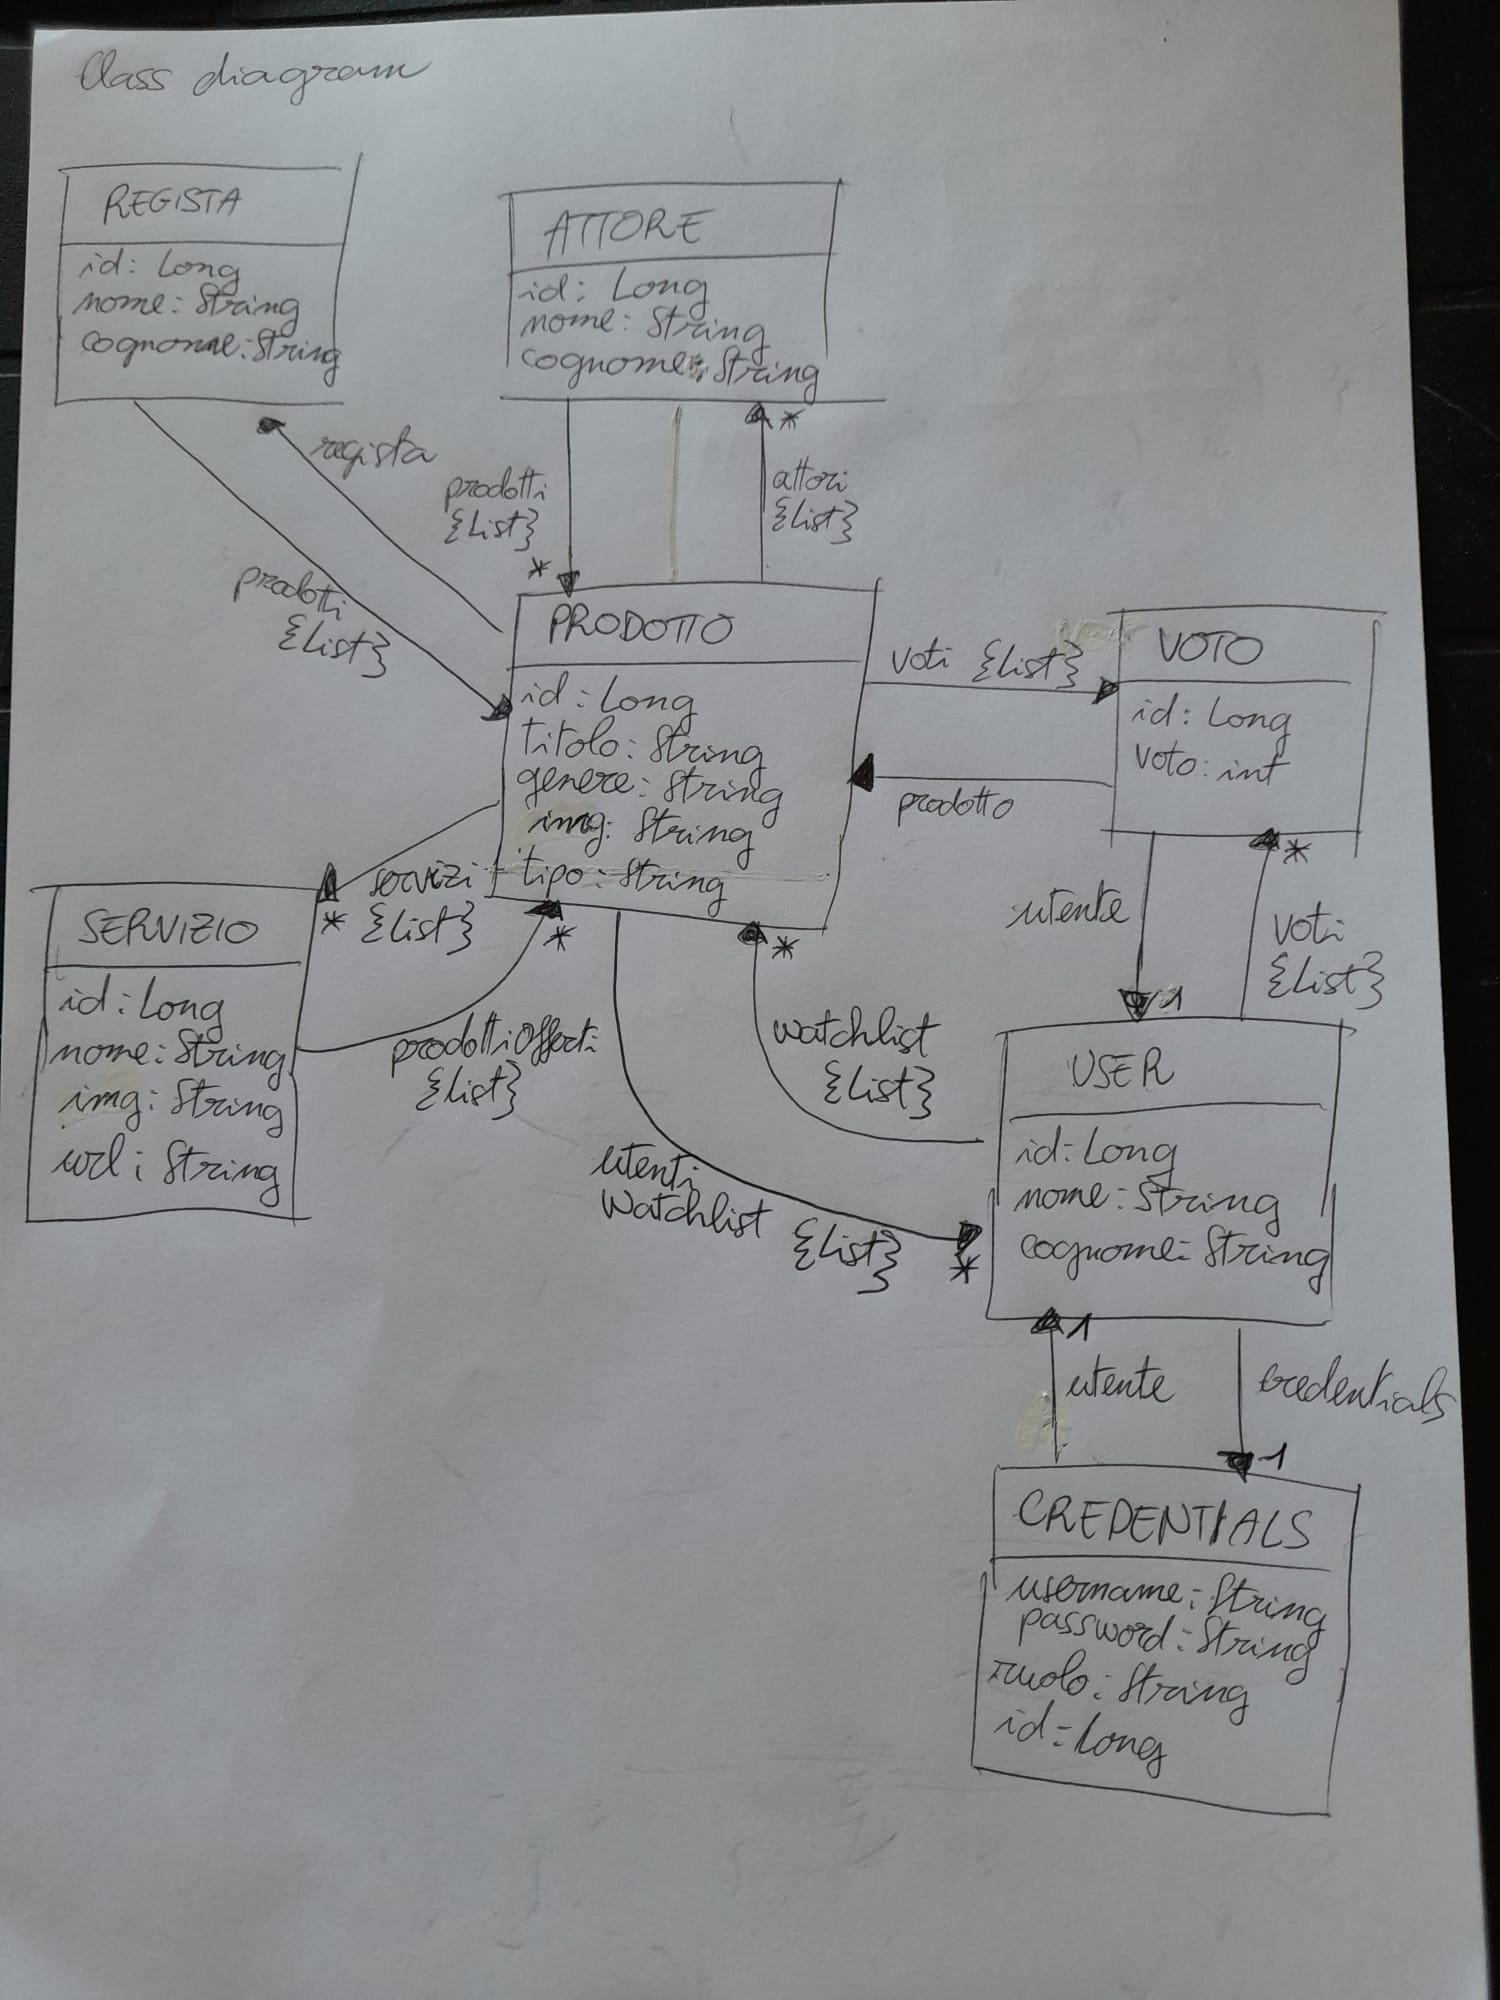 Class diagram
REGISTA
id: Long
nome: String
cognome: String
ATTORE
id: Long
nome: String
cognome: String
regista
prodotti
{List}
prodotti
{List}
*
*
attori
{List}
PRODOTTO
id: Long
titolo: String
genere: String
img: String
tipo: String
voti {List}
prodotto
VOTO
id: Long
voto: int
servizi
* {List}
SERVIZIO
id: Long
nome: String
img: String
url: String
*
prodottiOfferti
{List}
*
watchlist
{List}
utenti
Watchlist {List}
*
utente
1
*
voti
{List}
USER
id: Long
nome: String
cognome: String
1
utente
credentials
1
CREDENTIALS
username: String
password: String
ruolo: String
id: Long